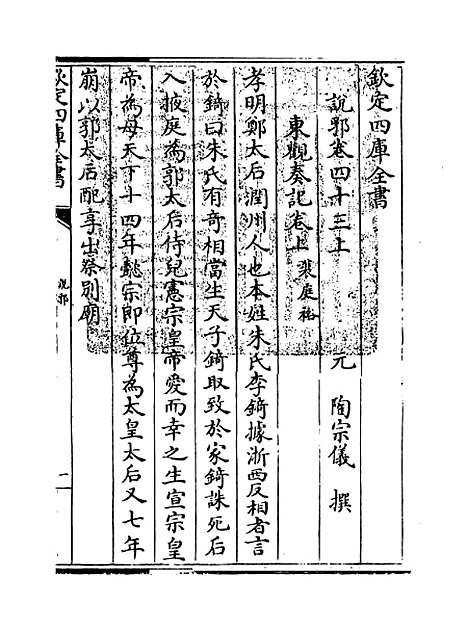 欽定四庫全書
說郛卷四十三上
元 陶宗儀 撰
東觀奏記卷上 裴庭裕
孝明鄭太后潤州人也本姓朱氏李錡據浙西反相者言
於錡曰朱氏有奇相當生天子錡取致於家錡誅死后
入掖庭為郭太后侍兒憲宗皇帝愛而幸之生宣宗皇
帝為母天下十四年懿宗即位尊為太皇太后又七年
崩以郭太后配享出祭别廟
欽定四庫全書
說郛
一